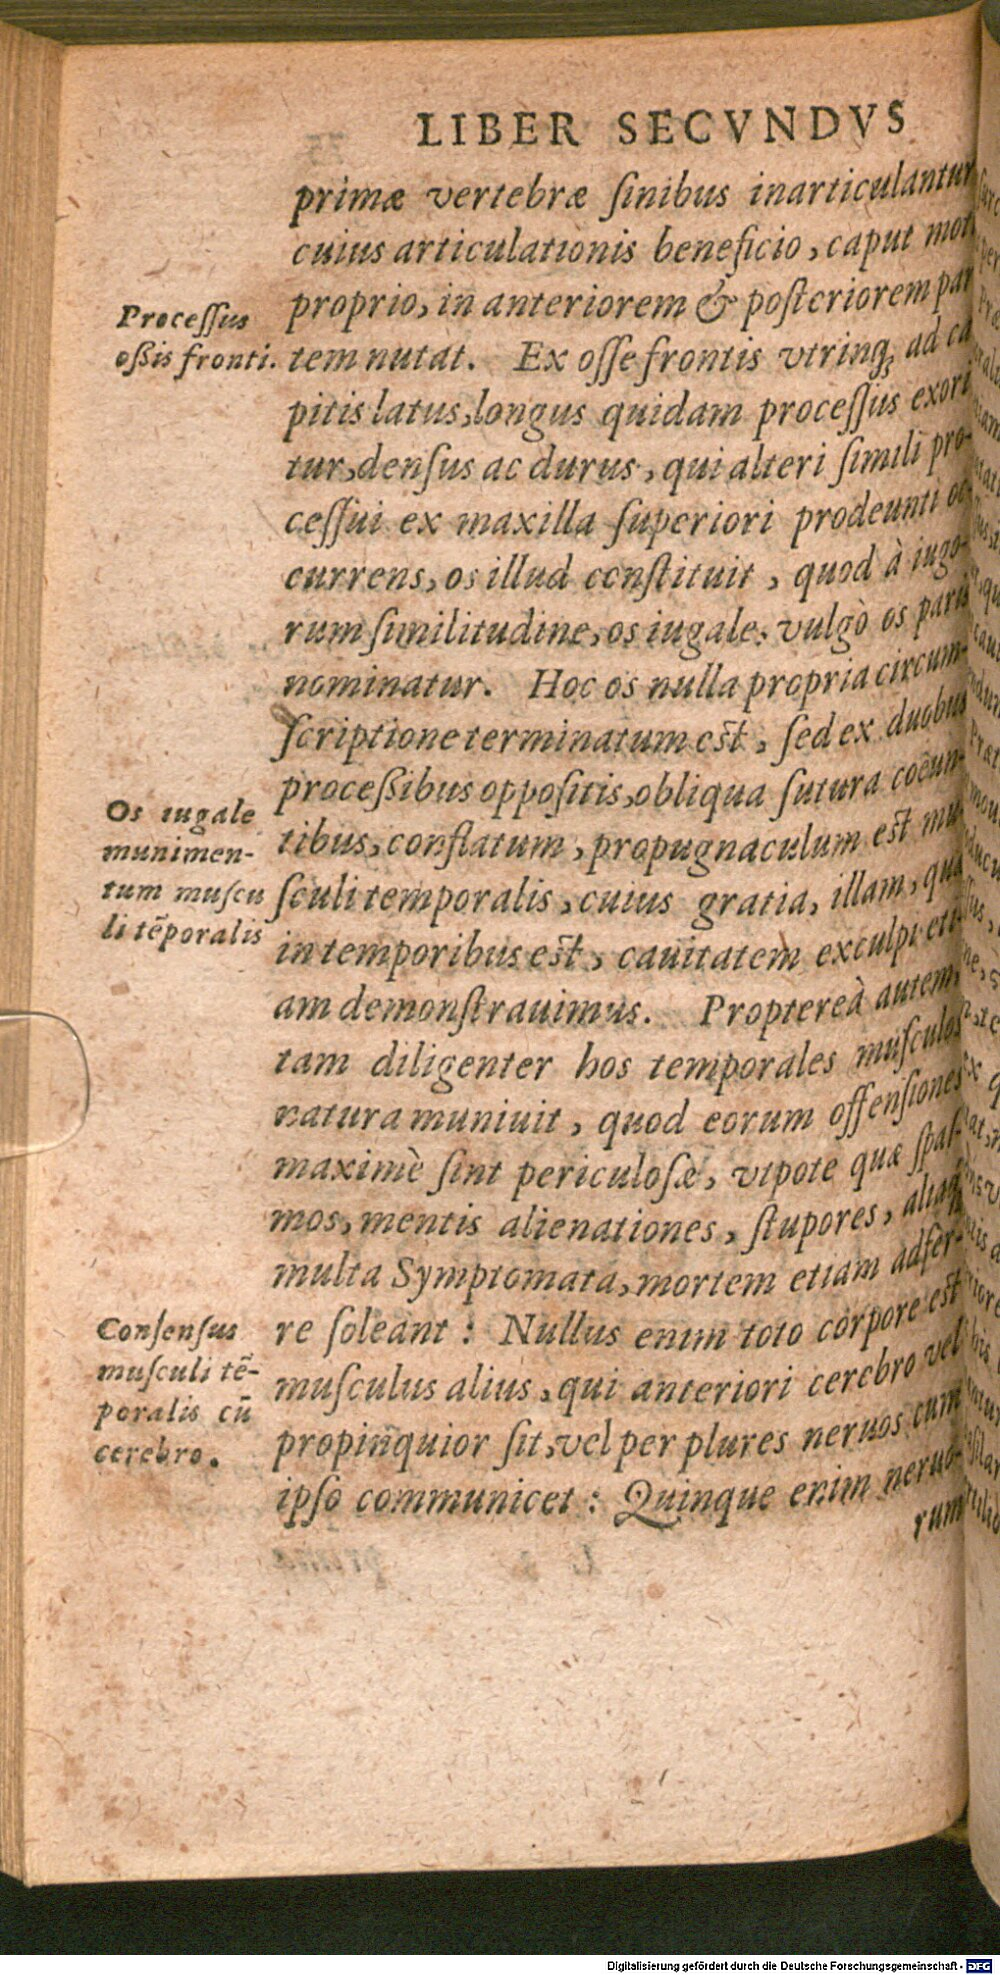 LIBER SECVNDVS
primæ vertebræ ſinibus inarticulantur
cuius articulationis beneficio, caput mot
proprio, in anteriorem & poſteriorem par
Proceſſus
oßis fronti.
tem nutat. Ex oſſe frontis vtrinq; ad ca
pitis latus, longus quidam proceſſus exori
tur, denſus ac durus, qui alteri ſimili pro-
ceſſui ex maxilla ſuperiori prodeunti oc
currens, os illud conſtituit, quod à iugo-
rum ſimilitudine, os iugale: vulgò os paris
nominatur. Hoc os nulla propria circum-
ſcriptione terminatum est, ſed ex duobus
proceßibus oppoſitis, obliqua ſutura coëun-
Os iugale
munimen-
tum muſcu
li tēporalis
tibus, conflatum, propugnaculum est mu
ſculi temporalis, cuius gratia, illam, quæ
in temporibus est, cauitatem exculpi eti-
am demonſtrauimus. Propтereà autem
tam diligenter hos temporales muſculos
natura muniuit, quod eorum offenſiones
maximè ſint periculoſæ, vtpote quæ ſpaſ-
mos, mentis alienationes, ſtupores, aliaq;
multa Symptomata, mortem etiam adfer-
Conſenſus
muſculi tē-
poralis cū
cerebro.
re ſoleant: Nullus enim toto corpore est
muſculus alius, qui anteriori cerebro vel
propinquior ſit, vel per plures neruos cum
ipſo communicet: Quinque enim neruo-
rum
Digitalisierung gefördert durch die Deutsche Forschungsgemeinschaft - DFG